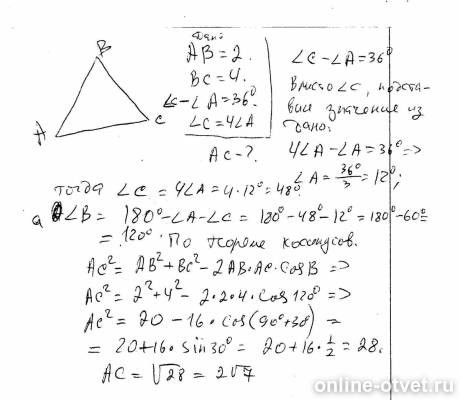 B
A
C
Дано
AB = 2.
BC = 4.
∠C - ∠A = 36°.
∠C = 4∠A
AC - ?
∠C - ∠A = 36°
Вместо ∠C, подста-
вим значение из
дано:
4∠A - ∠A = 36° =>
∠A = 36°/3 = 12°;
тогда ∠C = 4∠A = 4·12° = 48°
а ∠B = 180° - ∠A - ∠C = 180° - 48° - 12° = 180° - 60° =
= 120° По теореме косинусов.
AC² = AB² + BC² - 2AB·AC·cosB =>
AC² = 2² + 4² - 2·2·4·cos120° =>
AC² = 20 - 16·cos(90° + 30) =
= 20 + 16·sin30° = 20 + 16·1/2 = 28.
AC = √28 = 2√7
online-otvet.ru